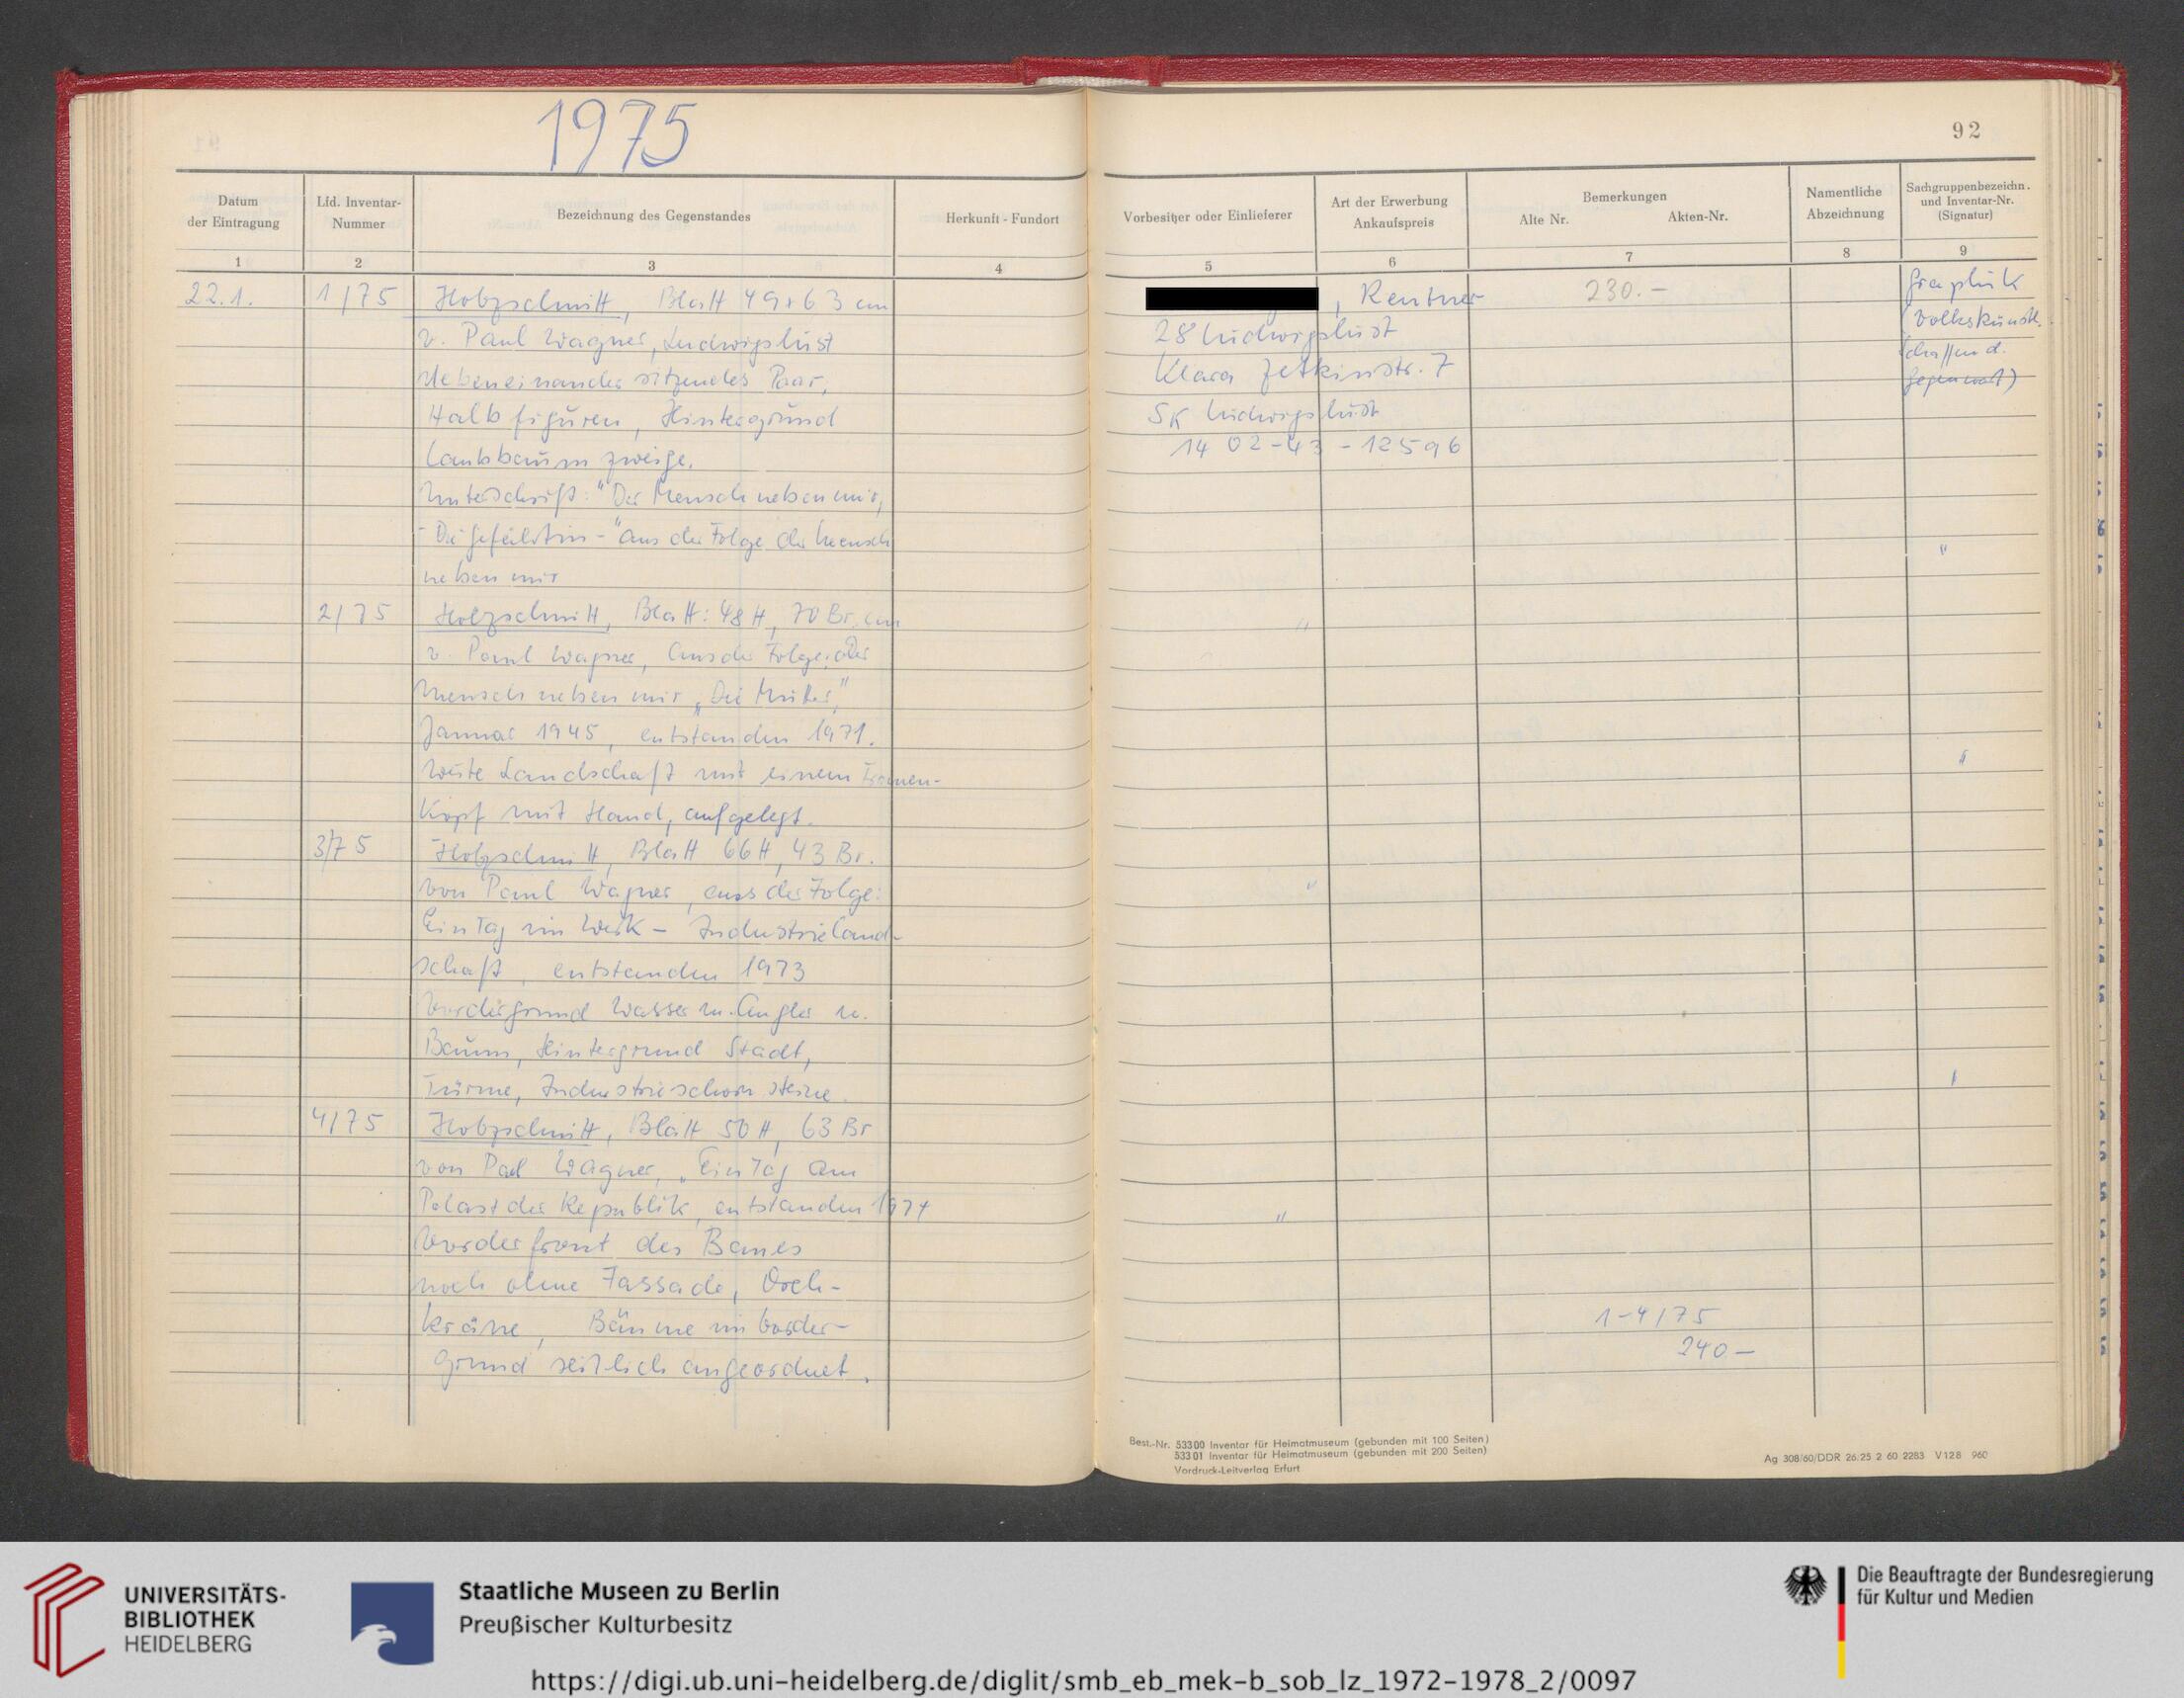 1975
92
Datum der Eintragung
Lfd. Inventar-Nummer
Bezeichnung des Gegenstandes
Herkunft - Fundort
Vorbesitzer oder Einlieferer
Art der Erwerbung Ankaufspreis
Bemerkungen
Alte Nr. Akten-Nr.
Namentliche Abzeichnung
Sachgruppenbezeichn. und Inventar-Nr. (Signatur)
1 2 3 4 5 6 7 8 9
22.1. 1/75 Holzschnitt, Blatt 49x63 cm
v. Paul Wagner, Ludwigslust
Nebeneinander sitzendes Paar,
Halbfiguren, Hintergrund
Laubbaumzweige.
Unterschrift: "Der Mensch neben mir,
- Die Gefährtin -" aus der Folge der Mensch
neben mir
2/75 Holzschnitt, Blatt: 48 H, 70 Br. cm
v. Paul Wagner, Aus der Folge: Der
Mensch neben mir „Die Mutter,"
Januar 1945, entstanden 1971.
Weite Landschaft mit einem Frauen-
Kopf mit Hand, aufgelegt.
3/75 Holzschnitt, Blatt 66 H, 43 Br.
von Paul Wagner, aus der Folge:
Ein Tag im Werk - Industrieland-
schaft, entstanden 1973
Vordergrund Wasser m. Angler u.
Baum, Hintergrund Stadt,
Türme, Industrieschornsteine.
4/75 Holzschnitt, Blatt 50 H, 63 Br
von Paul Wagner, „Ein Tag am
Palast der Republik, entstanden 1974
Vorderfront des Baues
noch ohne Fassade, Dreh-
kräne, Bäume im Vorder-
grund seitlich angeordnet.
, Rentner
28 Ludwigslust
Klara Zetkinstr. 7
SK Ludwigslust
14 02-43-12596
"
"
"
230.-
1-4/75
240-
Graphik
(Volkskünstl.
Schaffen d.
Gegenwart)
"
"
Best.-Nr. 53300 Inventar für Heimatmuseum (gebunden mit 100 Seiten)
53301 Inventar für Heimatmuseum (gebunden mit 200 Seiten)
Vordruck-Leitverlag Erfurt
Ag 308/60/DDR 26 25 2 60 2283 V128 960
UNIVERSITÄTS-
BIBLIOTHEK
HEIDELBERG
Staatliche Museen zu Berlin
Preußischer Kulturbesitz
Die Beauftragte der Bundesregierung
für Kultur und Medien
https://digi.ub.uni-heidelberg.de/diglit/smb_eb_mek-b_sob_lz_1972-1978_2/0097